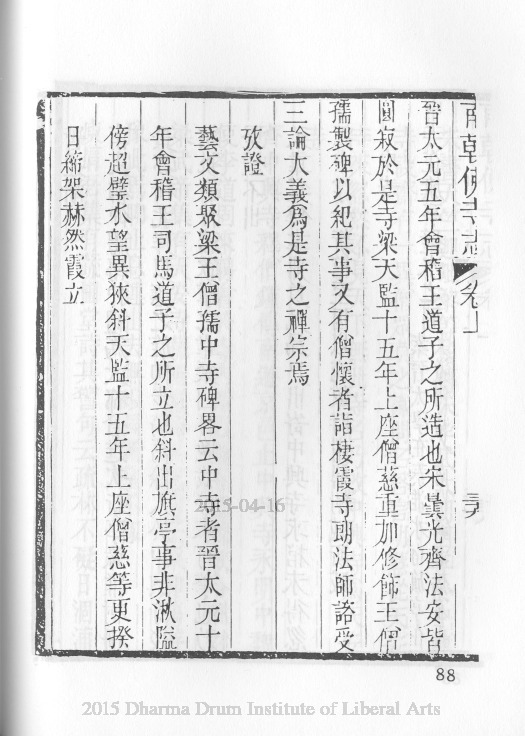 南朝佛寺志 卷上 三六
晉太元五年會稽王道子之所造也宋曇光齊法安皆
圓寂於是寺梁天監十五年上座僧慈重加修飾王僧
孺製碑以紀其事又有僧懷者詣棲霞寺朗法師諮受
三論大義爲是寺之禪宗焉
攷證
藝文類聚梁王僧孺中寺碑畧云中寺者晉太元十
年會稽王司馬道子之所立也斜出旗亭事非湫隘
傍超璧水望異狹斜天監十五年上座僧慈等更揆
日締架赫然霞立
2015-04-16
88
2015 Dharma Drum Institute of Liberal Arts